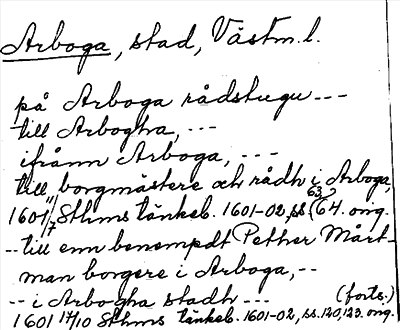 Arboga, stad, Västm.l.
på Arboga rådstugu ---
till Arbogha, ---
ifrånn Arboga, ---
till borgmästere och rådh i Arboga,
1601 11/7 Sthms tänkeb. 1601-02, ss. 63, 64. ong.
-- till enn benempdt Pether Mårt-
man borgere i Arboga, --
-- i Arbogha stadh --- (forts.)
1601 17/10 Sthms tänkeb. 1601-02, ss. 120, 123. ong.